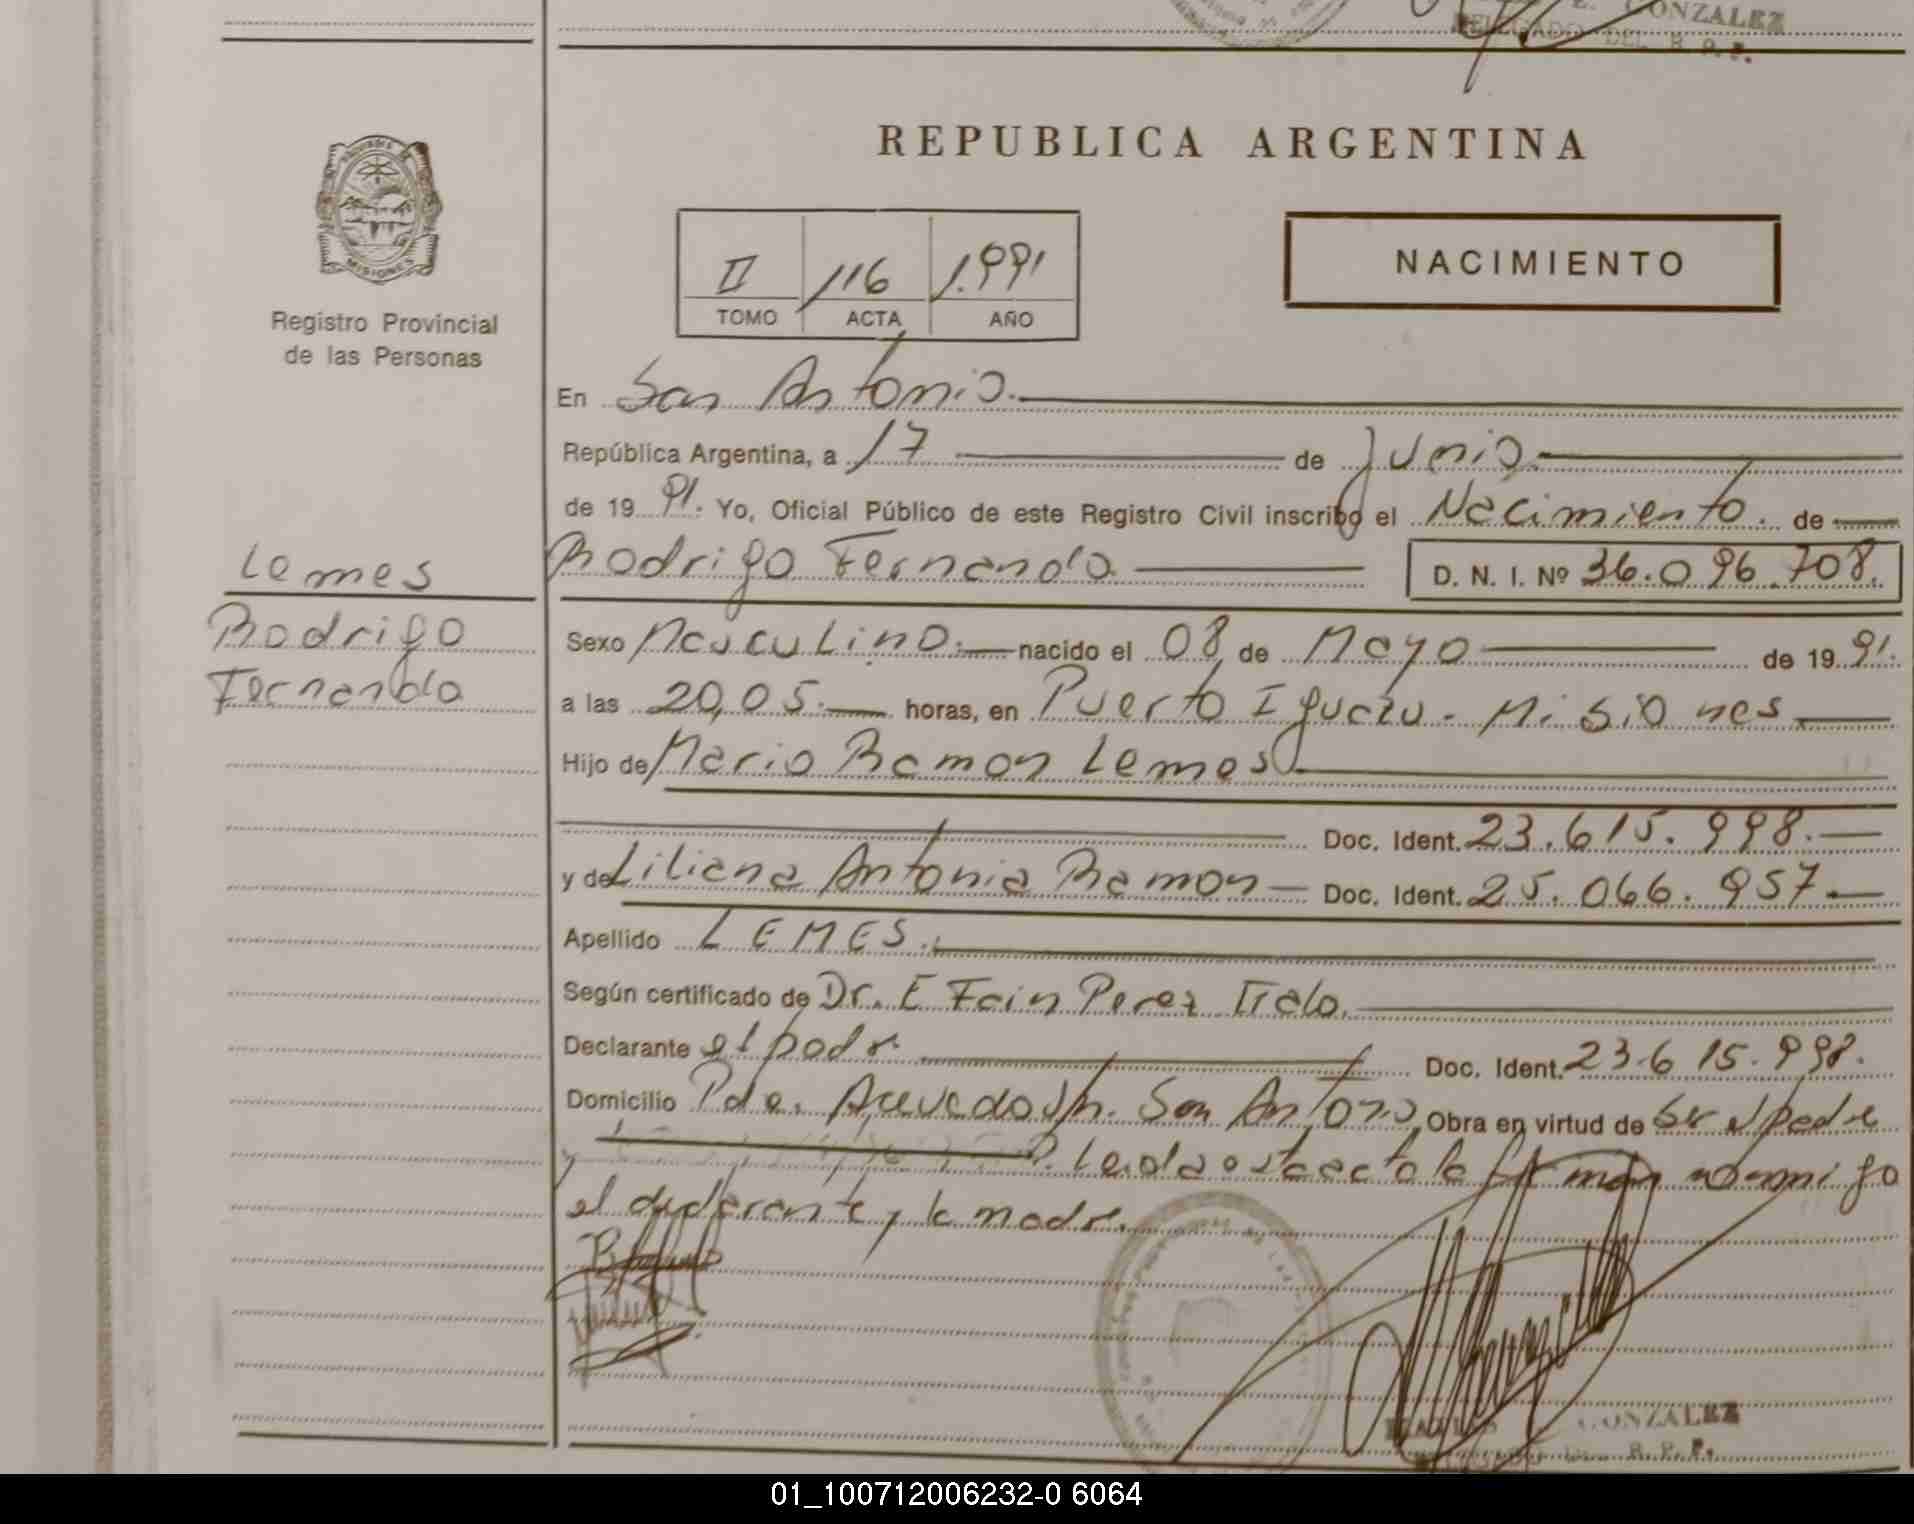 GONZALEZ
DELEGADO DEL R. P. P.
REPUBLICA ARGENTINA
MISIONES
Registro Provincial
de las Personas
II 116 1.991
TOMO ACTA AÑO
NACIMIENTO
En San Antonio.
República Argentina, a 17 de Junio.
de 19 91. Yo, Oficial Público de este Registro Civil inscribo el Nacimiento. de
Lemes
Rodrigo
Fernando
Rodrigo Fernando D. N. I. Nº 36.096.708.
Sexo Masculino. nacido el 08 de Mayo de 19 91.
a las 20,05. horas, en Puerto Iguazu - Misiones
Hijo de Mario Ramon Lemes
Doc. Ident. 23.615.998.
y de Liliana Antonia Ramon Doc. Ident. 25.066.957
Apellido LEMES.
Según certificado de Dr. E Fain Perez Italo.
Declarante el padre. Doc. Ident. 23.615.998.
Domicilio Pde. Acevedo S/n. San Antonio Obra en virtud de Ser el padre
Leida esta acta la firman conmigo
el declarante y la madre.
GONZALEZ
R. P. P.
01_100712006232-0 6064